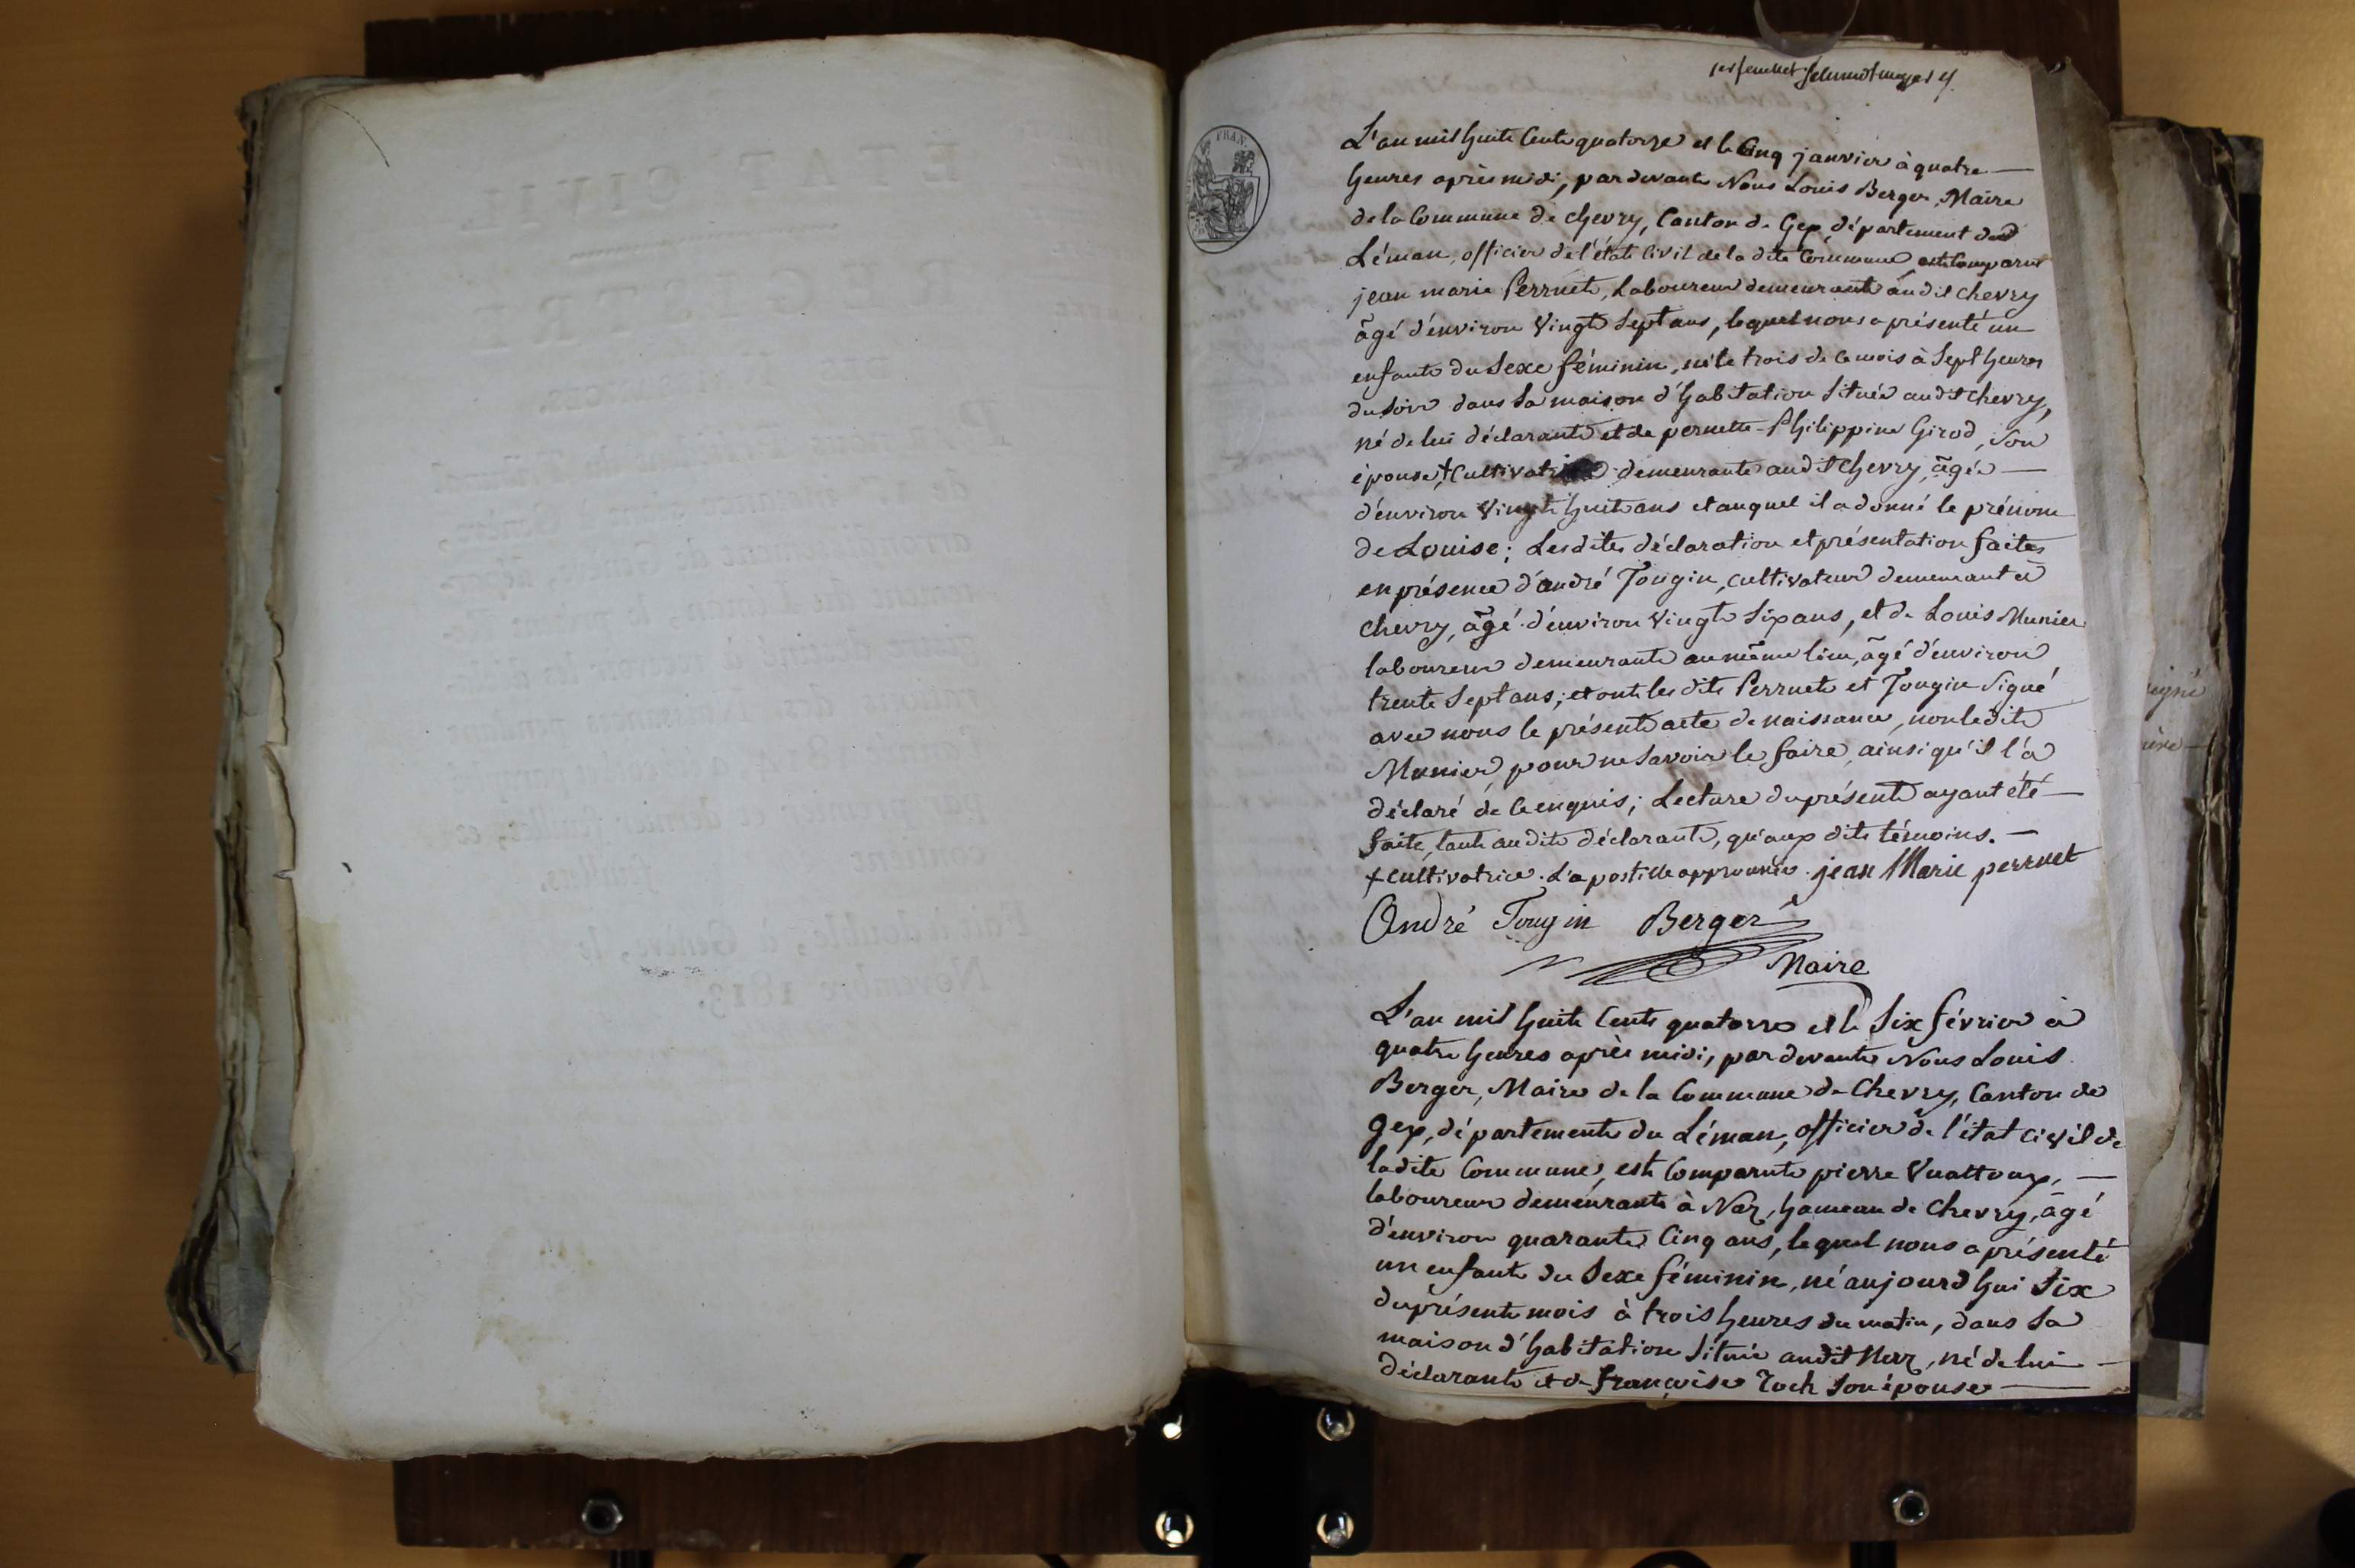 FRAN.
1er feuillet
L'an mil huit Cent quatorze et le Cinq janvier à quatre —
heures après midi, par devant Nous Louis Berger, Maire
de la Commune de Chevry, Canton de Gex, département du
Léman, officier de l'état Civil de la dite Commune, est Comparu
jean marie Perruet, Laboureur demeurant au dit Chevry
âgé d'environ Vingt Sept ans, lequel nous a présenté un
enfant du Sexe féminin, né le trois de ce mois à Sept heures
du Soir dans Sa maison d'habitation Située audit Chevry,
né de lui déclarant et de pernette-Philippine Girod, Son
épouse, + Cultivat demeurante audit Chevry, âgée —
d'environ Vingt huit ans et auquel il a donné le prénom
de Louise; Lesdites déclaration et présentation faites
en présence d'andré Tougin, cultivateur demeurant à
Chevry, âgé d'environ Vingt Six ans, et de Louis Munier
laboureur demeurant au même lieu, âgé d'environ
trente Sept ans; et ont les dits Perruet et Tougin Signé
avec nous le présent acte de naissance, non le dit
Munier pour ne Savoir le faire, ainsi qu'il l'a
déclaré de ce enquis; Lecture du présent ayant été —
faite, tant au dit déclarant, qu'aux dits témoins. —
+ Cultivatrice. L'apostille approuvée. jean Marie perruet
André Tougin Berger
Maire
L'an mil huit Cent quatorze et le Six février à
quatre heures après midi, par devant Nous Louis
Berger, Maire de la Commune de Chevry, Canton de
Gex, département du Léman, officier de l'état civil de
ladite Commune, est Comparut pierre Vuattoux, —
laboureur demeurant à Naz, hameau de Chevry, âgé
d'environ quarante Cinq ans, lequel nous a présenté
un enfant du Sexe féminin, né aujourd'hui Six
du présent mois à trois heures du matin, dans Sa
maison d'habitation Située audit Naz, né de lui —
déclarant et de Françoise Roch Son épouse —